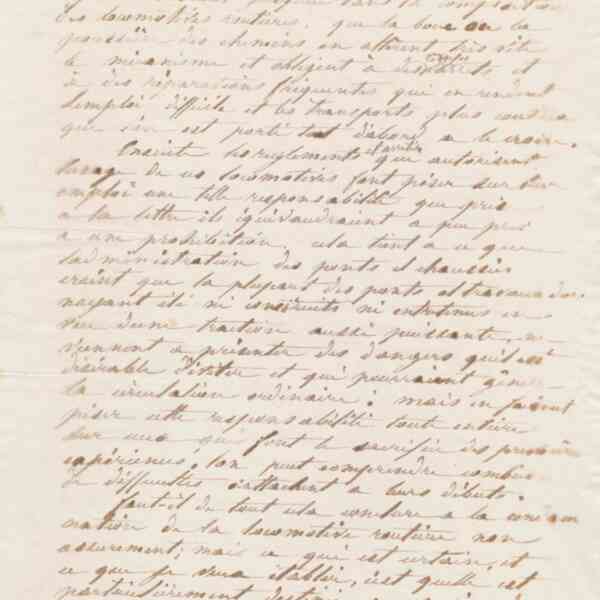 des locomotives routières. que la boue ou la
poussière des chemins en altèrent très vite
le mécanisme et obligent à des arrêts et
à des réparations fréquentes qui en rendent
l'emploi difficile et les transports plus
que l'on est porté tout d'abord à le croire.
Ensuite les réglements que autorisent
l'usage de ces locomotives font péser sur leur
emploi une telle responsabilité que pris
a la lettre ils équivaudraient a peu près
a une prohibition. cela tient a ce que
l'administration des ponts et chaussées
craint que la plupart des ponts et travaux
n'ayant été ni construits ni entretenus en
vue d'une traction aussi puissante, ne
viennent a présenter des dangers qu'il est
désirable d'éviter et qui pourraient gêner
la circulation ordinaire ; mais en faisant
péser cette responsabilité toute entière
sur ceux qui font le sacrifice des premières
expériences, l'on peut comprendre combien
de difficultés s'attachent a leurs débuts.
faut-il de tout cela conclure a la
de la locomotive routière non
assurement, mais ce qui est certain, et
ce que je veux établir, c'est quelle est
particulièrement